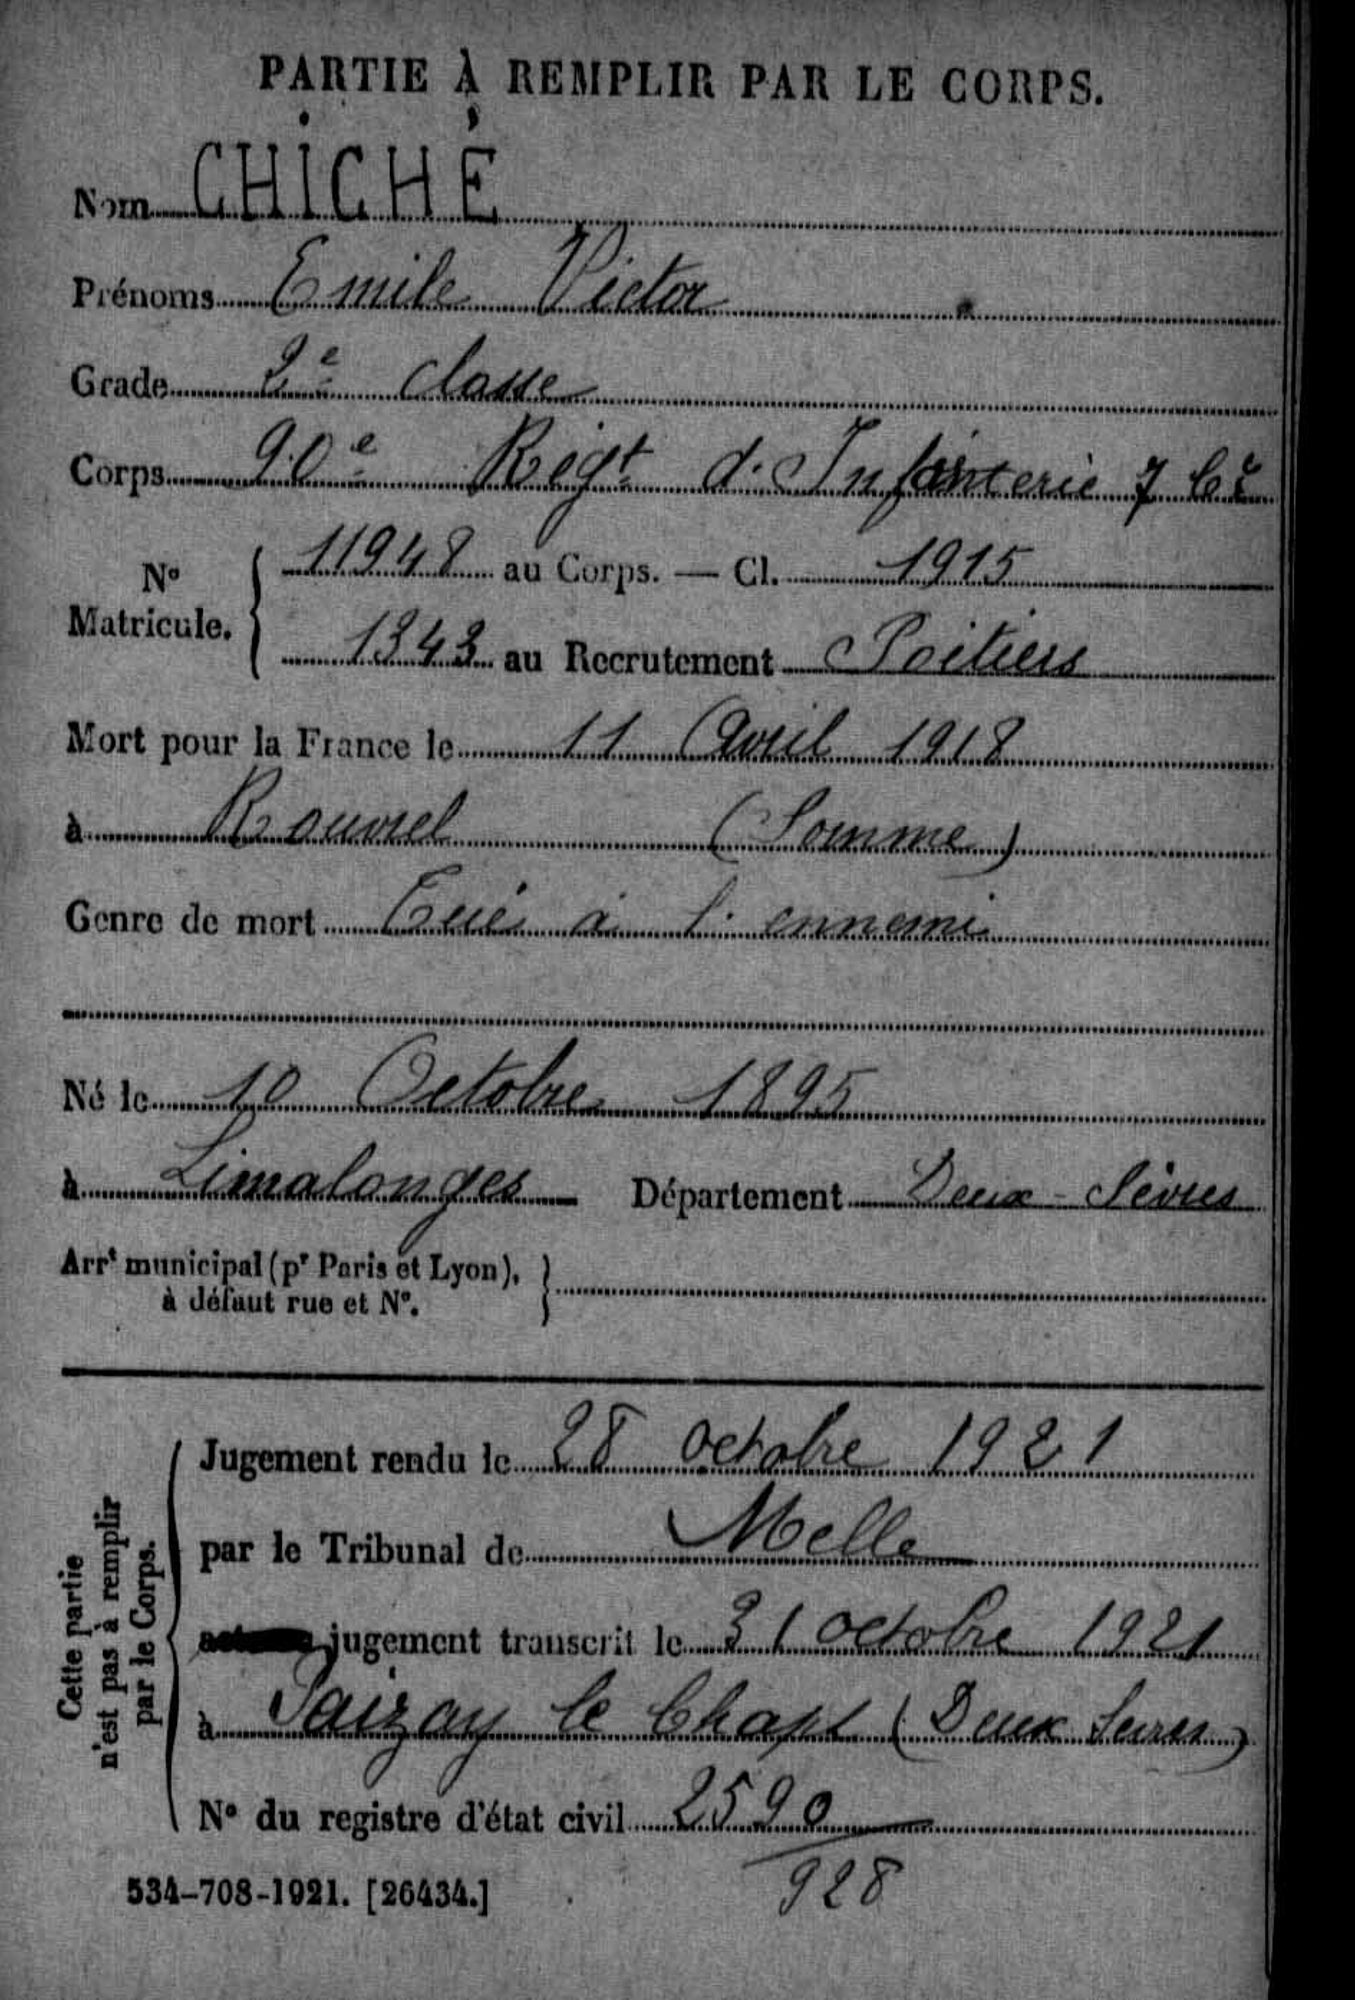 PARTIE À REMPLIR PAR LE CORPS.
Nom CHICHÉ
Prénoms Emile Victor
Grade 2e classe
Corps 90e Régt d'Infanterie 7 Cie
No Matricule. { 11948 au Corps. — Cl. 1915
1343 au Recrutement Poitiers
Mort pour la France le 11 Avril 1918
à Rouvrel (Somme)
Genre de mort Tué à l'ennemi
Né le 10 Octobre 1895
à Limalonges Département Deux-Sèvres
Arrt municipal (pr Paris et Lyon),
à défaut rue et No. }
Cette partie
n'est pas à remplir
par le Corps.
Jugement rendu le 28 octobre 1921
par le Tribunal de Melle
jugement transcrit le 31 octobre 1921
à Paizay le Chapt (Deux Sèvres)
No du registre d'état civil 2590
928
534-708-1921. [26434.]